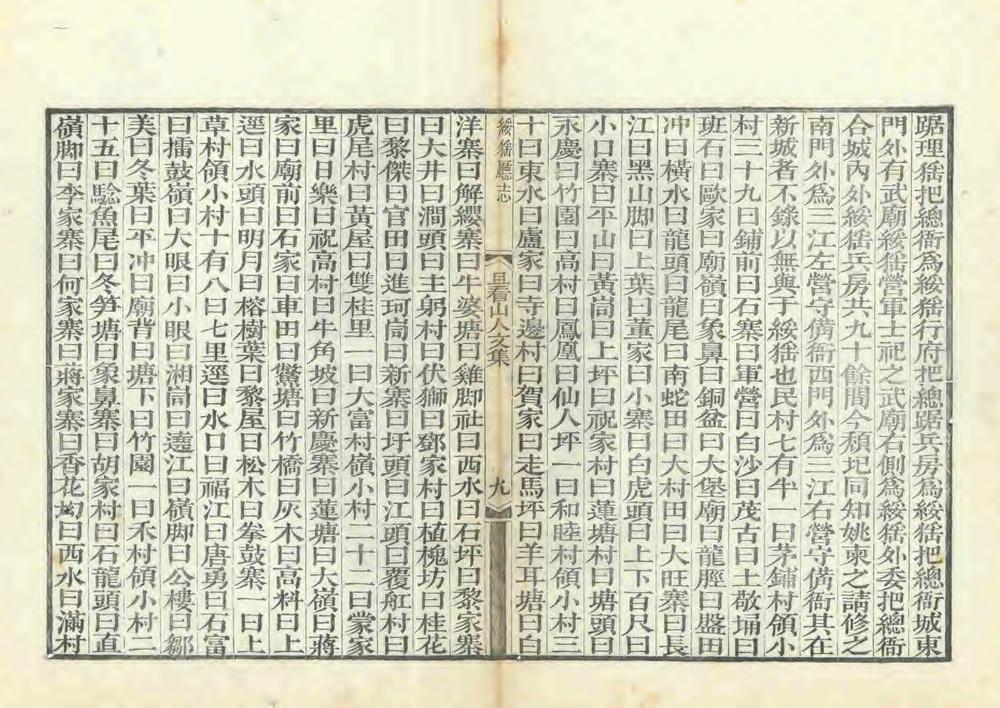 踞理猺把總衙爲綏猺行府把總踞兵房爲綏猺把總衙城東
門外有武廟綏猺營軍士祀之武廟右側爲綏猺外委把總衙
合城內外綏猺兵房共九十餘間今頽圮同知姚柬之請修之
南門外爲三江左營守備衙西門外爲三江右營守備衙其在
新城者不錄以無與于綏猺也民村七有半一曰茅鋪村領小
村三十九曰鋪前曰石寨曰軍營曰白沙曰茂古曰土敬埇曰
班石曰歐家曰廟嶺曰象鼻曰銅盆曰大堡廟曰龍脛曰盤田
冲曰橫水曰龍頭曰龍尾曰南蛇田曰大村田曰大旺寨曰長
江曰黑山脚曰上葉曰董家曰小寨曰白虎頭曰上下百尺曰
小口寨曰平山曰黃崗曰上坪曰祝家村曰蓮塘村曰塘頭曰
永慶曰竹園曰高村曰鳳凰曰仙人坪一曰和睦村領小村三
十曰東水曰盧家曰寺邊村曰賀家曰走馬坪曰羊耳塘曰白
綏猺廳志
且看山人文集
九
洋寨曰解纓寨曰牛婆塘曰雞脚社曰西水曰石坪曰黎家寨
曰大井曰澗頭曰主躬村曰伏獅曰鄧家村曰植槐坊曰桂花
曰黎傑曰官田曰進珂峝曰新寨曰圩頭曰江頭曰覆舡村曰
虎尾村曰黃屋曰雙桂里一曰大富村嶺小村二十二曰蒙家
里曰日樂曰祝高村曰牛角坡曰新慶寨曰蓮塘曰大嶺曰蔣
家曰廟前曰石家曰車田曰鱉塘曰竹橋曰灰木曰高料曰上
逕曰水頭曰明月曰榕樹葉曰黎屋曰松木曰拳鼓寨一曰上
草村領小村十有八曰七里逕曰水口曰福江曰唐勇曰石富
曰擂鼓嶺曰大眼曰小眼曰湘峝曰蕘江曰嶺脚曰公樓曰鄒
美曰冬葉曰平冲曰廟背曰塘下曰竹園一曰禾村領小村二
十五曰騐魚尾曰冬笋塘曰象鼻寨曰胡家村曰石龍頭曰直
嶺脚曰李家寨曰何家寨曰蔣家寨曰香花坳曰西水曰滿村